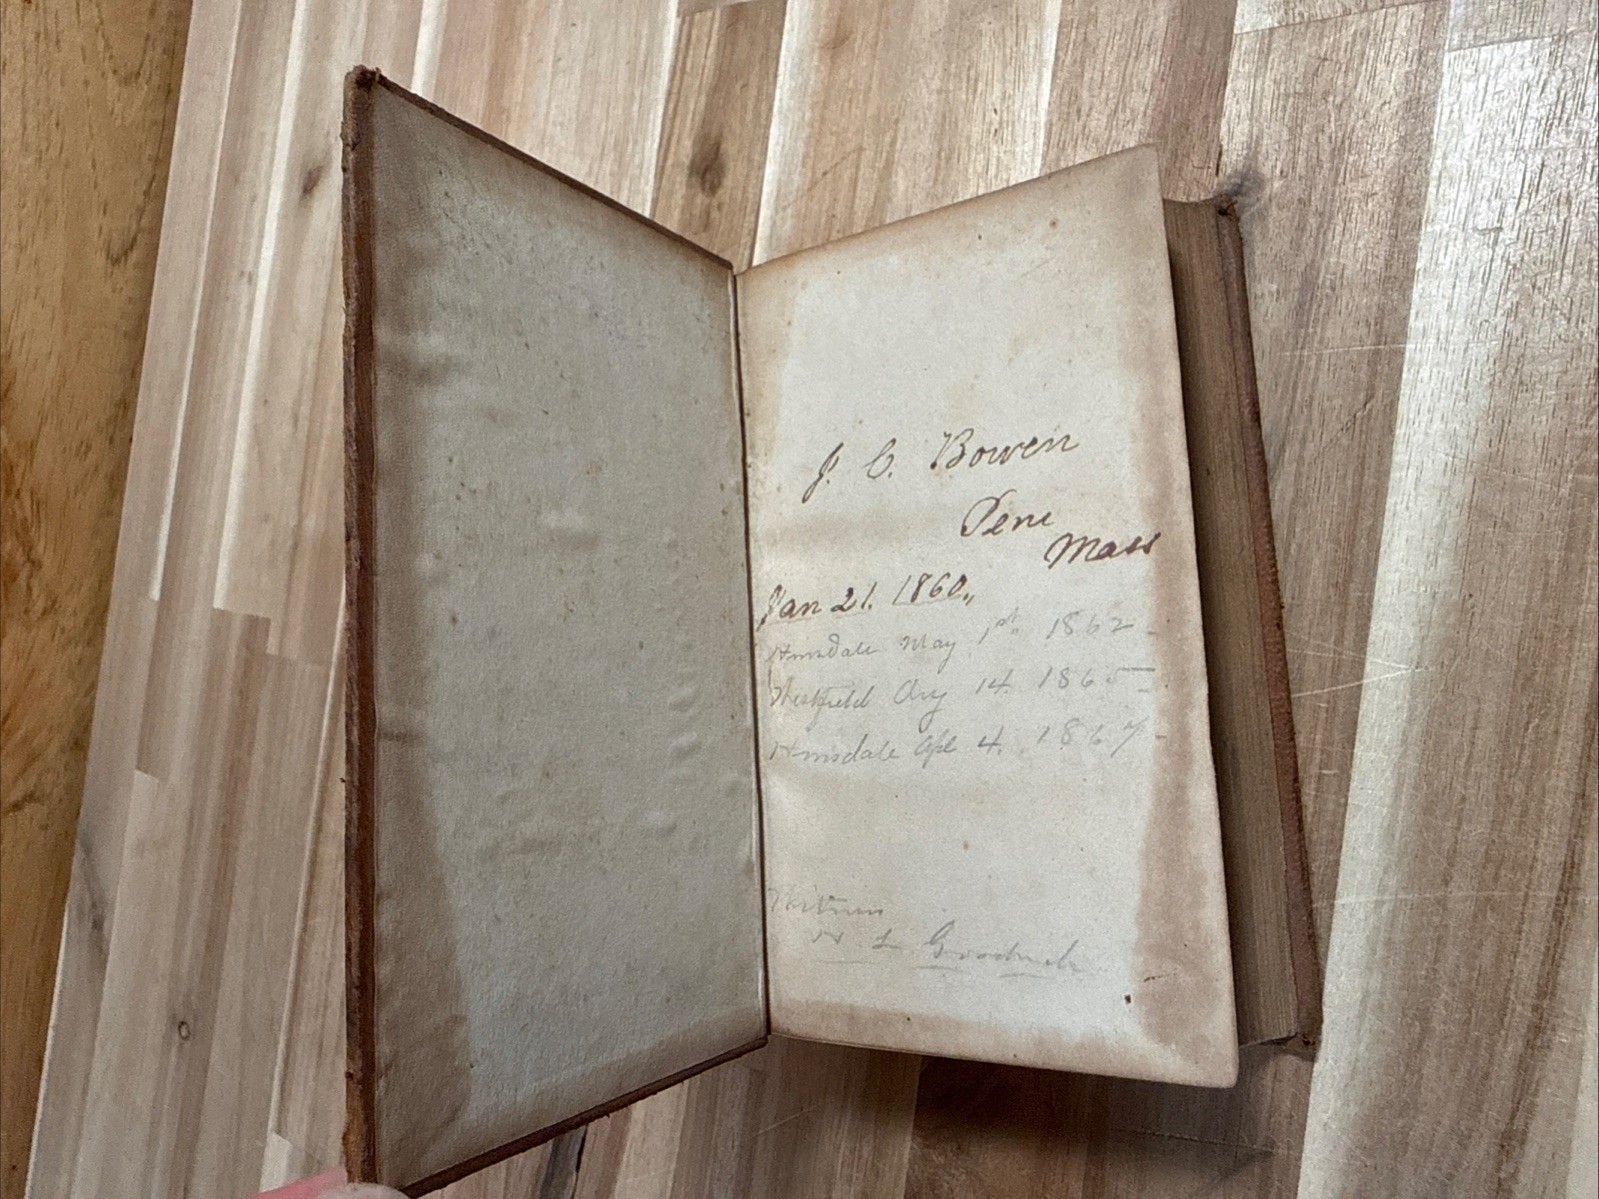 J. C. Bowen
Peru
Mass
Jan 21. 1860.,
Hinsdale May 1st. 1862 -
Westfield Aug 14 1865 -
Hinsdale Apl 4. 1867 -
H. L. Goodrich